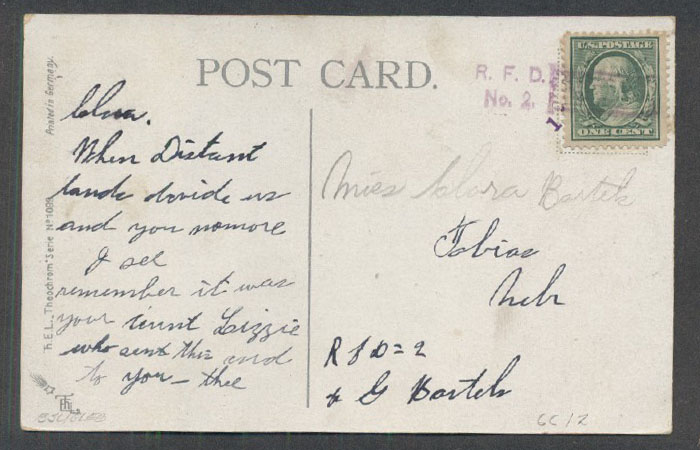 POST CARD.
R. F. D.
No. 2.
U.S. POSTAGE
ONE CENT
Printed in Germany.
R.E.L., "Theochrom" Serie Nº 1088
Clara.
When Distant
lands divide us
and you nomore
I see
remember it was
your aunt Lizzie
who sent this card
to you – thee
Miss Clara Bartels
Tobias
Nebr
R F D = 2
G Bartels
CC12